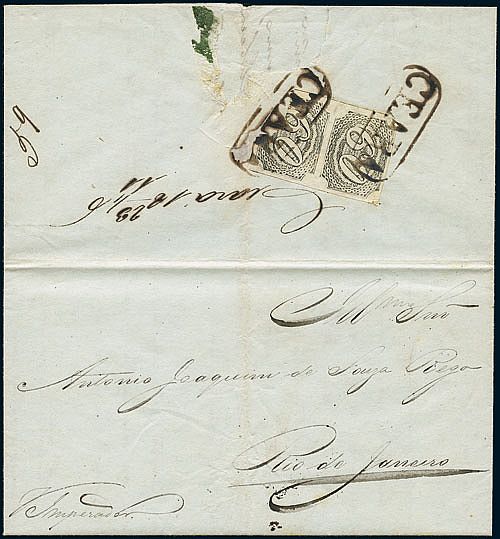 CEARÁ
CEARÁ
60
60
Ceará 18 23/11 46
Illmo Snr
Antonio Joaquim de Souza Rego
Rio de Janeiro
V. Imperador.